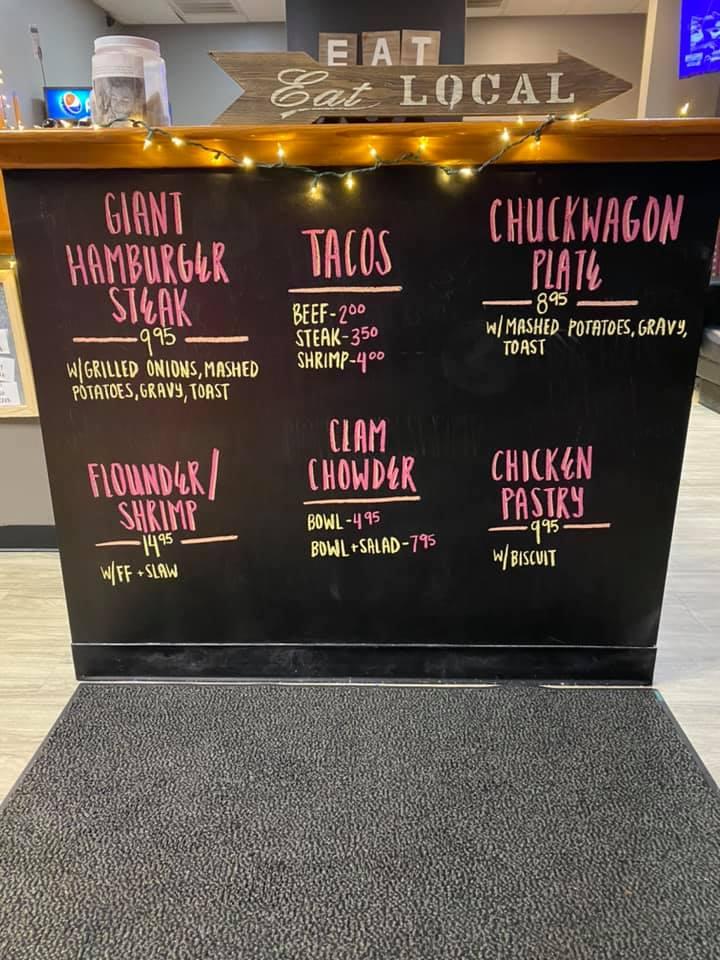 EAT
Eat LOCAL
pepsi
GIANT
HAMBURGER
STEAK
9.95
W/GRILLED ONIONS, MASHED
POTATOES, GRAVY, TOAST
TACOS
BEEF-2.00
STEAK-3.50
SHRIMP-4.00
CHUCKWAGON
PLATE
8.95
W/MASHED POTATOES, GRAVY,
TOAST
FLOUNDER/
SHRIMP
14.95
W/FF + SLAW
CLAM
CHOWDER
BOWL-4.95
BOWL+SALAD-7.95
CHICKEN
PASTRY
9.95
W/BISCUIT